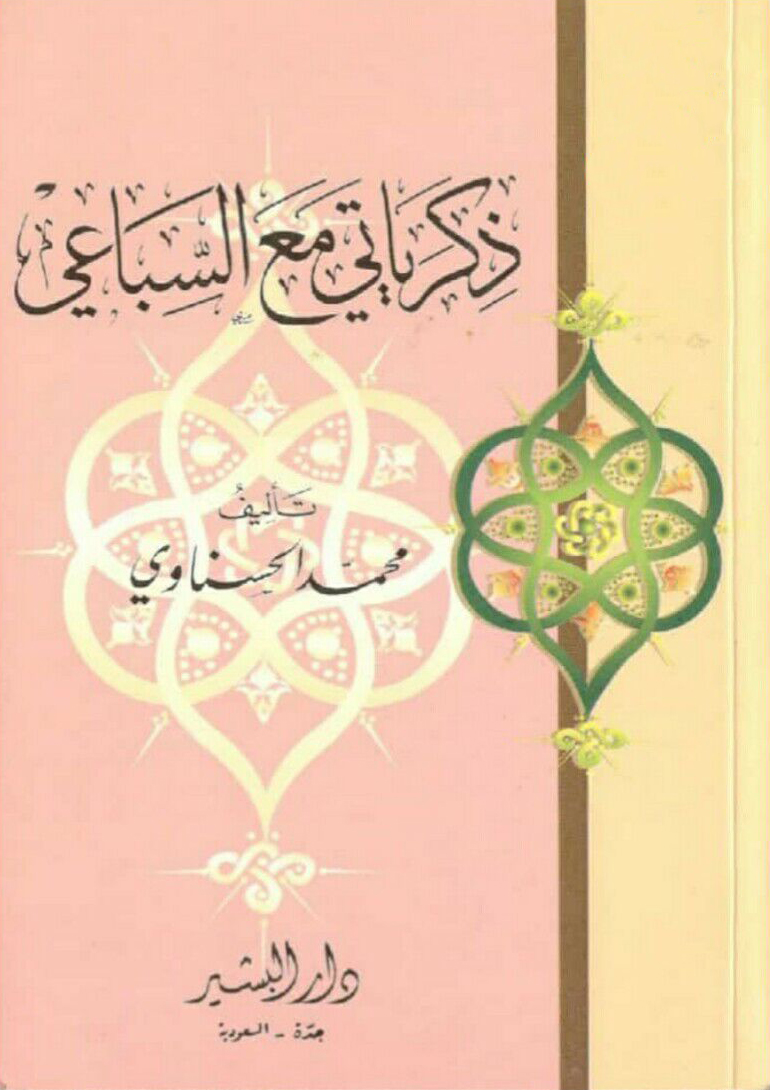 ذِكرَيَاتي مَعَ السِّبَاعي
تَأليفُ
محمد الحسناوي
دار البشير
جدّة - السعودية